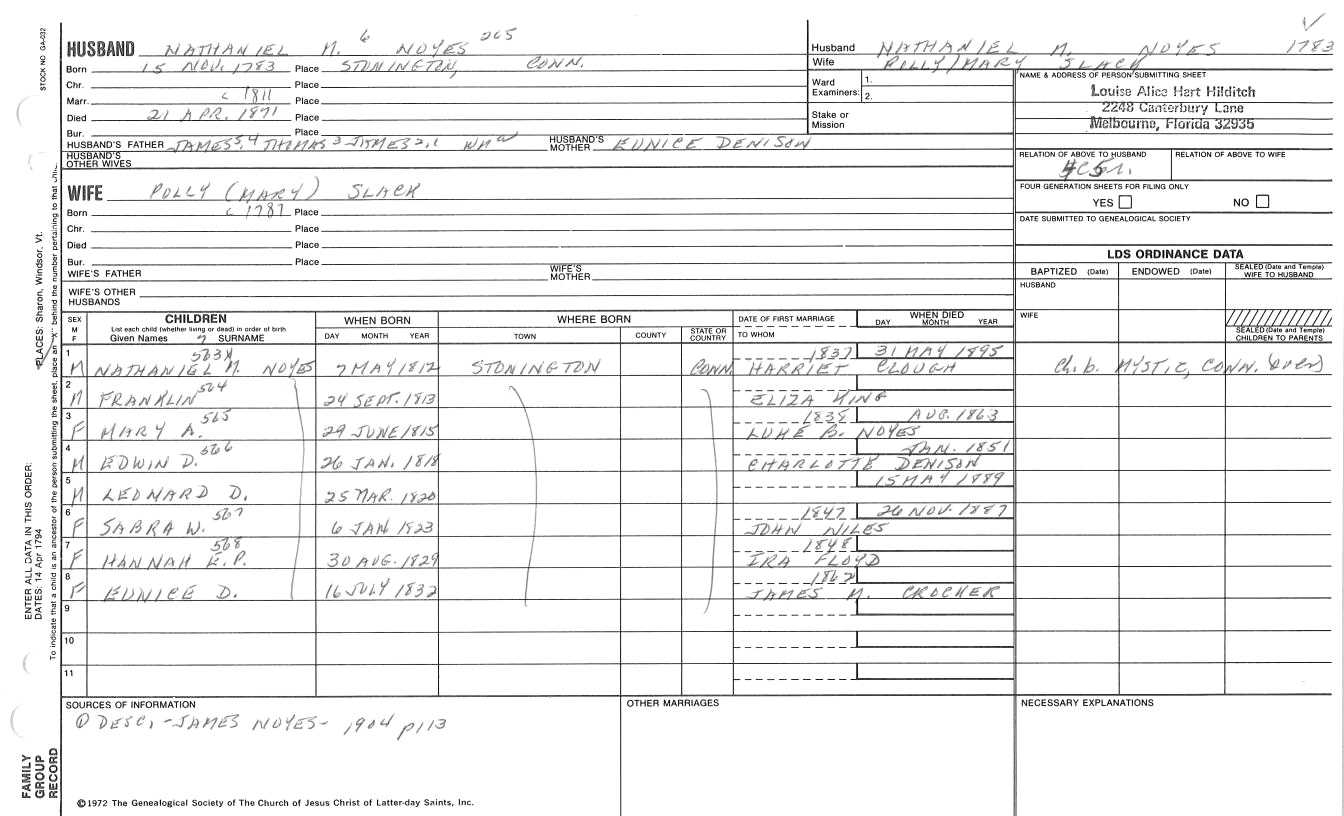 STOCK NO. GA-032
HUSBAND NATHANIEL M. 6 NOYES 265
Born 15 NOV. 1783 Place STONINGTON, CONN.
Chr. Place
Marr. c 1811 Place
Died 21 APR. 1871 Place
Bur. Place
HUSBAND'S FATHER JAMES 5,4 THOMAS 3 JAMES 2,1 Wm HUSBAND'S MOTHER EUNICE DENISON
HUSBAND'S OTHER WIVES
WIFE POLLY (MARY) SLACK
Born c 1787 Place
Chr. Place
Died Place
Bur. Place
WIFE'S FATHER WIFE'S MOTHER
WIFE'S OTHER HUSBANDS
Husband NATHANIEL M. NOYES 1783
Wife POLLY/MARY SLACK
Ward Examiners: 1. 2.
Stake or Mission
NAME & ADDRESS OF PERSON SUBMITTING SHEET
Louise Alice Hart Hilditch
2248 Canterbury Lane
Melbourne, Florida 32935
RELATION OF ABOVE TO HUSBAND RELATION OF ABOVE TO WIFE
FOUR GENERATION SHEETS FOR FILING ONLY
YES NO
DATE SUBMITTED TO GENEALOGICAL SOCIETY
LDS ORDINANCE DATA
BAPTIZED (Date) ENDOWED (Date) SEALED (Date and Temple) WIFE TO HUSBAND
HUSBAND
WIFE
SEALED (Date and Temple) CHILDREN TO PARENTS
SEX M F CHILDREN WHEN BORN WHERE BORN DATE OF FIRST MARRIAGE WHEN DIED
List each child (whether living or dead) in order of birth
Given Names 7 SURNAME DAY MONTH YEAR TOWN COUNTY STATE OR COUNTRY TO WHOM DAY MONTH YEAR
1 563 1837 31 MAY 1895
M NATHANIEL M. NOYES 7 MAY 1812 STONINGTON CONN HARRIET CLOUGH Ch. b. MYSTIC, CONN. (over)
2 564
M FRANKLIN 24 SEPT. 1813 ELIZA KING
3 565 1838 AUG. 1863
F MARY A. 29 JUNE 1815 LUKE B. NOYES
4 566 JAN. 1851
M EDWIN D. 26 JAN. 1818 CHARLOTTE DENISON
5 15 MAY 1889
M LEONARD D. 25 MAR. 1820
6 567 1847 26 NOV. 1887
F SABRA W. 6 JAN 1823 JOHN NILES
7 568 1848
F HANNAH E.P. 30 AUG. 1829 IRA FLOYD
8 1862
F EUNICE D. 16 JULY 1832 JAMES M. CROCHER
9
10
11
SOURCES OF INFORMATION OTHER MARRIAGES NECESSARY EXPLANATIONS
① DESC. - JAMES NOYES - 1904 p113
©1972 The Genealogical Society of The Church of Jesus Christ of Latter-day Saints, Inc.
FAMILY GROUP RECORD
ENTER ALL DATA IN THIS ORDER:
DATES: 14 Apr 1794
PLACES: Sharon, Windsor, Vt.
To indicate that a child is an ancestor of the person submitting the sheet, place an "X" behind the number pertaining to that